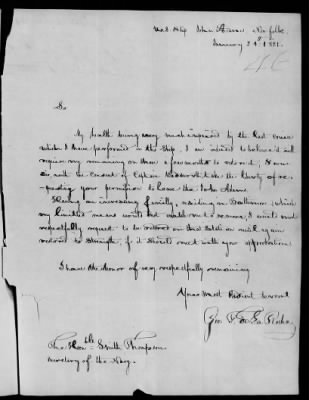 US Ship John Adams Norfolk
January 24th 1821.
Sir
My health being very much impaired by the last cruise
which I have performed in this Ship, I am induced to believe it will
require my remaining on shore a few months to restore it; I now
Sir, with the consent of Captain Wadsworth take the liberty of re-
questing your permission to leave the John Adams.
Having an increasing family, residing in Baltimore (which
my limited means will not enable me to remove, I would most
respectfully request to be on that Station until again
restored to Strength, if it should meet with your approbation
I have the honor of very respectfully remaining
Your most Obedient servant
Geo.
The Honble. Smith Thompson
Secretary of the Navy.